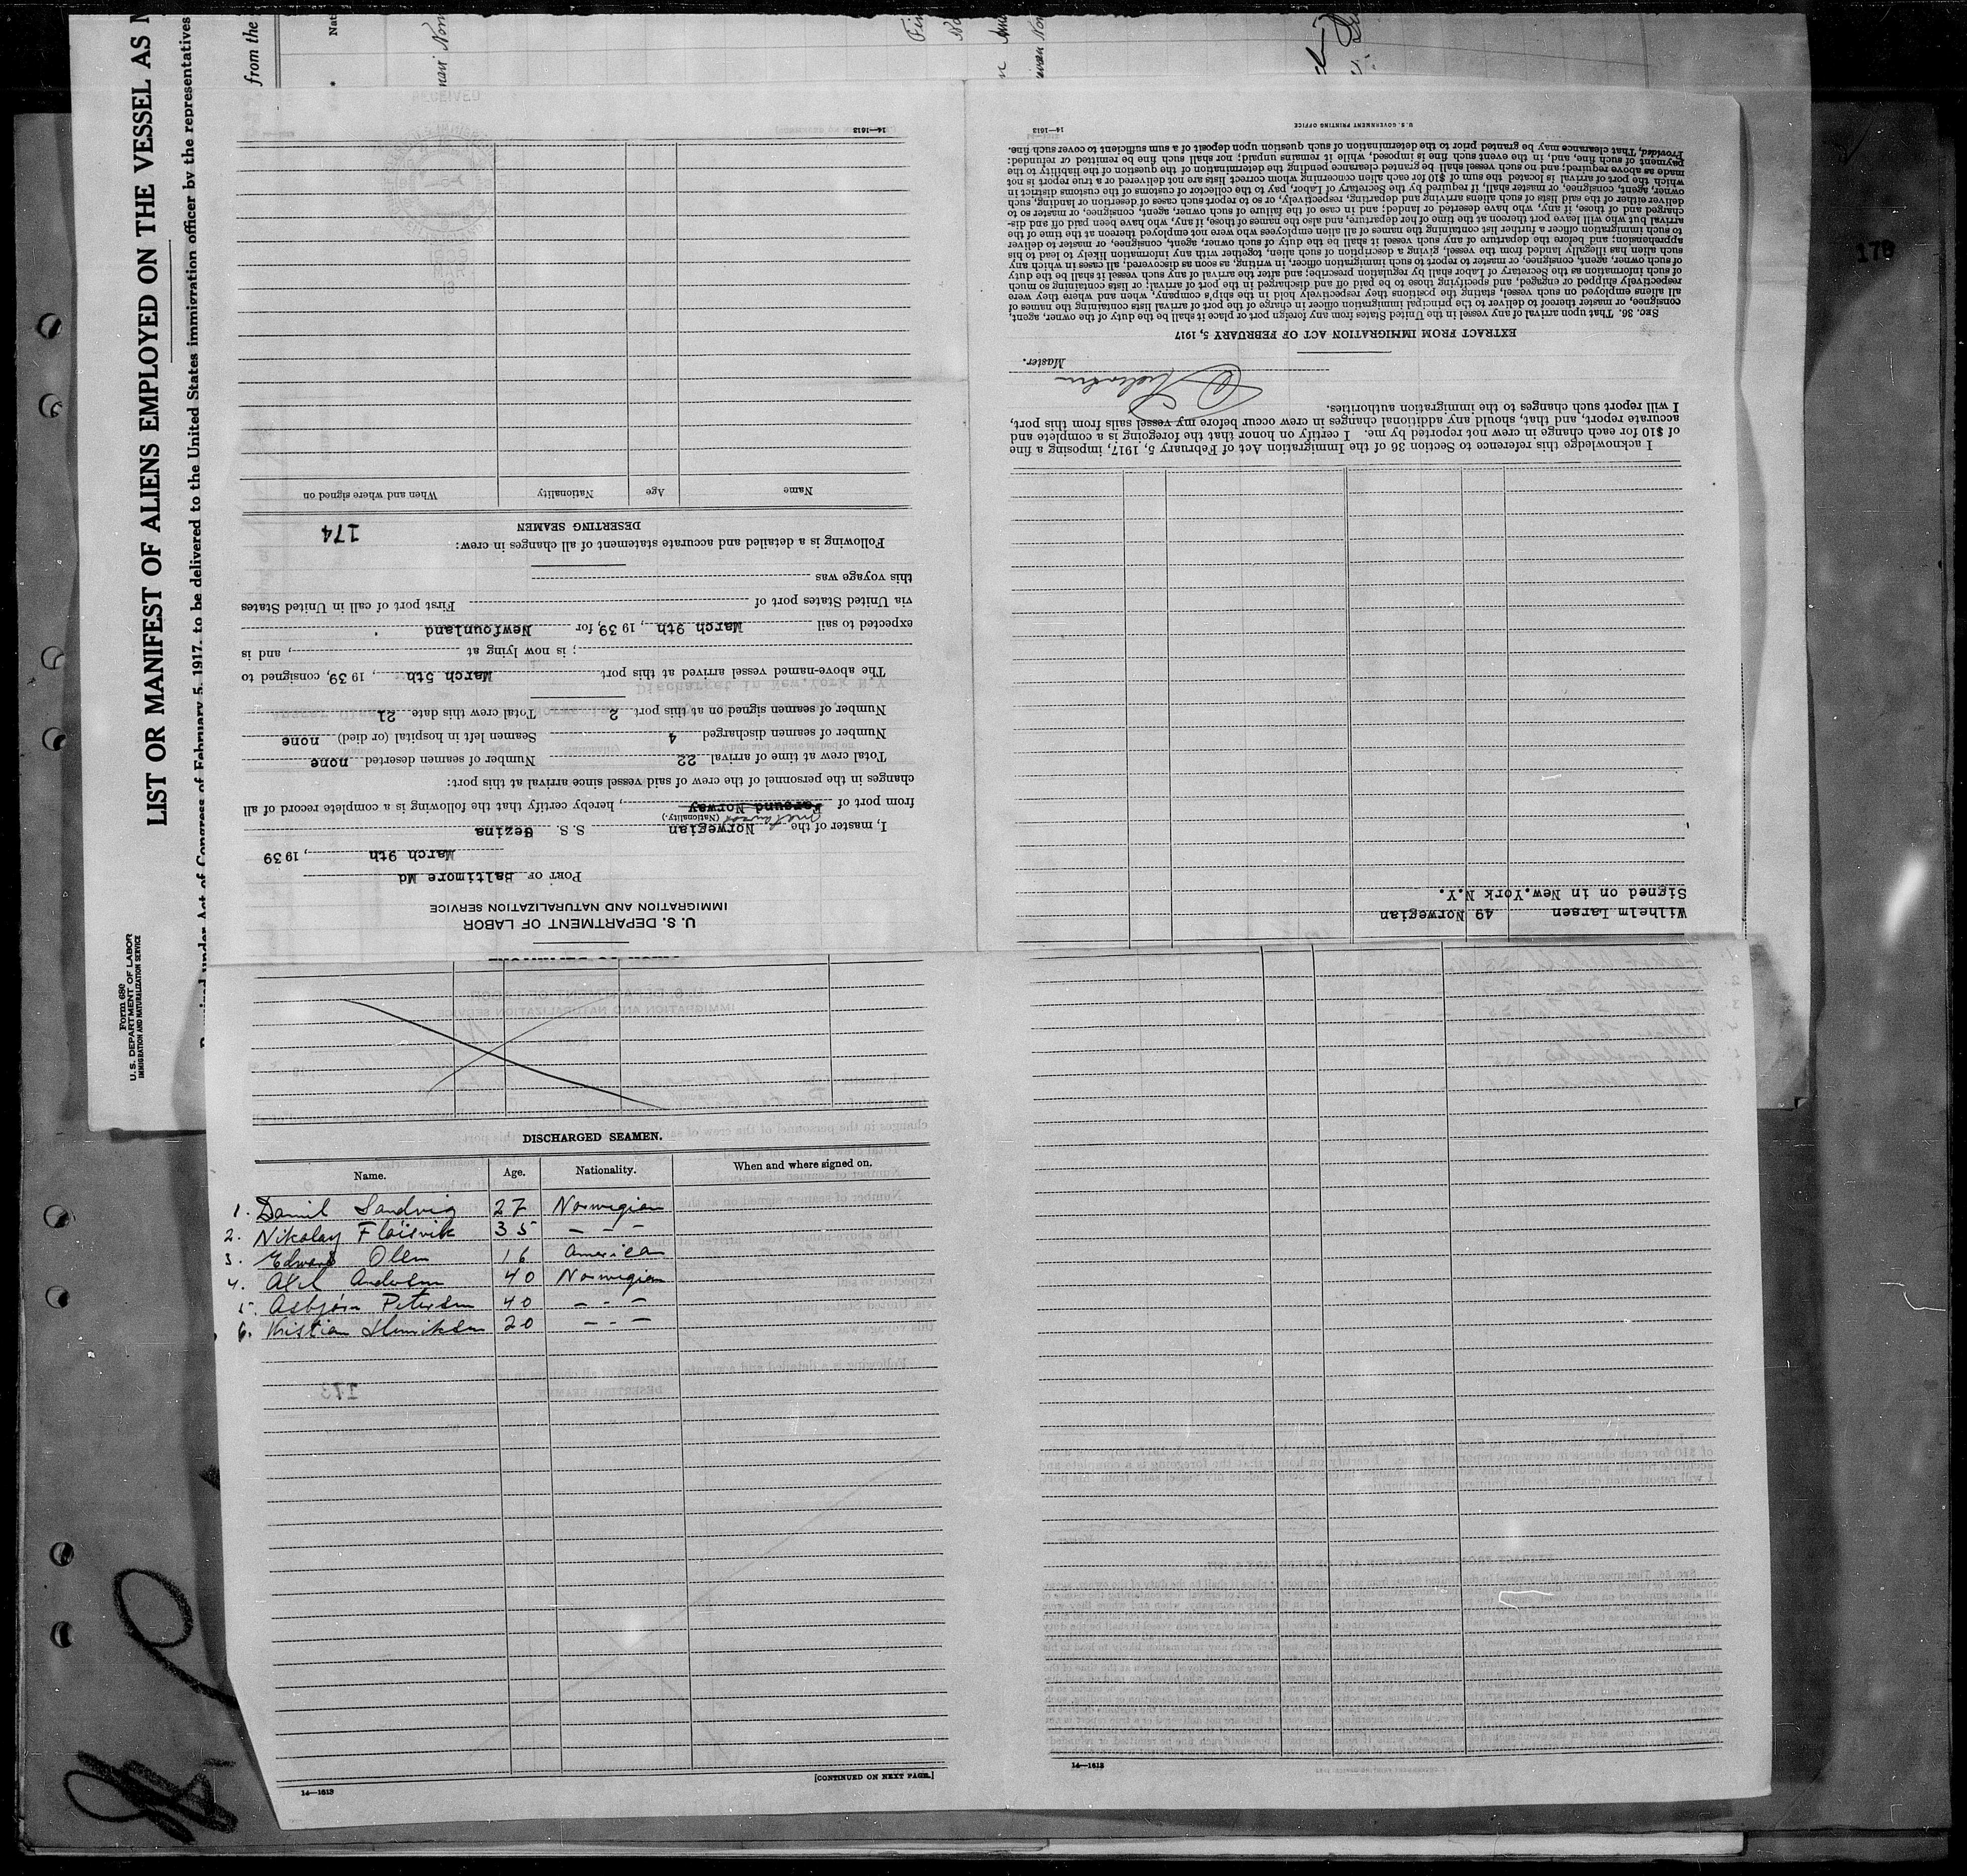 Form 680
U. S. DEPARTMENT OF LABOR
IMMIGRATION AND NATURALIZATION SERVICE
LIST OR MANIFEST OF ALIENS EMPLOYED ON THE VESSEL AS
Required under Act of Congress of February 5, 1917, to be delivered to the United States immigration officer by the representatives
from the
178
U. S. DEPARTMENT OF LABOR
IMMIGRATION AND NATURALIZATION SERVICE
PORT OF Baltimore Md
March 9th, 1939
I, master of the Norwegian S. S. Gezina
(Nationality.)
from port of Farsund Norway, hereby certify that the following is a complete record of all
changes in the personnel of the crew of said vessel since arrival at this port:
Total crew at time of arrival 22 Number of seamen deserted none
Number of seamen discharged 4 Seamen left in hospital (or died) none
Number of seamen signed on at this port 2 Total crew this date 21
The above-named vessel arrived at this port March 5th, 1939, consigned to
; is now lying at , and is
expected to sail March 9th, 1939, for Newfounland
via United States port of First port of call in United States
this voyage was
Following is a detailed and accurate statement of all changes in crew:
DESERTING SEAMEN
174
Name Age Nationality When and where signed on
14—1613
Wilhelm Larsen 49 Norwegian
Signed on in New.York N.Y.
I acknowledge this reference to Section 36 of the Immigration Act of February 5, 1917, imposing a fine
of $10 for each change in crew not reported by me. I certify on honor that the foregoing is a complete and
accurate report, and that, should any additional changes in crew occur before my vessel sails from this port,
I will report such changes to the immigration authorities.
Master.
EXTRACT FROM IMMIGRATION ACT OF FEBRUARY 5, 1917
SEC. 36. That upon arrival of any vessel in the United States from any foreign port or place it shall be the duty of the owner, agent,
consignee, or master thereof to deliver to the principal immigration officer in charge of the port of arrival lists containing the names of
all aliens employed on such vessel, stating the positions they respectively hold in the ship's company, when and where they were
respectively shipped or engaged, and specifying those to be paid off and discharged in the port of arrival; or lists containing so much
of such information as the Secretary of Labor shall by regulation prescribe; and after the arrival of any such vessel it shall be the duty
of such owner, agent, consignee, or master to report to such immigration officer, in writing, as soon as discovered, all cases in which any
such alien has illegally landed from the vessel, giving a description of such alien, together with any information likely to lead to his
apprehension; and before the departure of any such vessel it shall be the duty of such owner, agent, consignee, or master to deliver
to such immigration officer a further list containing the names of all alien employees who were not employed thereon at the time of the
arrival but who will leave port thereon at the time of her departure, and also the names of those, if any, who have been paid off and dis-
charged and of those, if any, who have deserted or landed; and in case of the failure of such owner, agent, consignee, or master so to
deliver either of the said lists of such aliens arriving and departing, respectively, or so to report such cases of desertion or landing, such
owner, agent, consignee, or master shall, if required by the Secretary of Labor, pay to the collector of customs of the customs district in
which the port of arrival is located the sum of $10 for each alien concerning whom correct lists are not delivered or a true report is not
made as above required; and no such vessel shall be granted clearance pending the determination of the question of the liability to the
payment of such fine, and, in the event such fine is imposed, while it remains unpaid; nor shall such fine be remitted or refunded:
Provided, That clearance may be granted prior to the determination of such question upon deposit of a sum sufficient to cover such fine.
U. S. GOVERNMENT PRINTING OFFICE
14—1613
DISCHARGED SEAMEN.
Name. Age. Nationality. When and where signed on.
1. Daniel Sandvig 27 Norwegian
2. Nikolay Fløisvik 35 - - -
3. Edward Olsen 16 American
4. Axel Andersen 40 Norwegian
5. Asbjørn Petersen 40 - - -
6. Kristian Henriksen 20 - - -
173
[CONTINUED ON NEXT PAGE.]
14—1613
14—1613